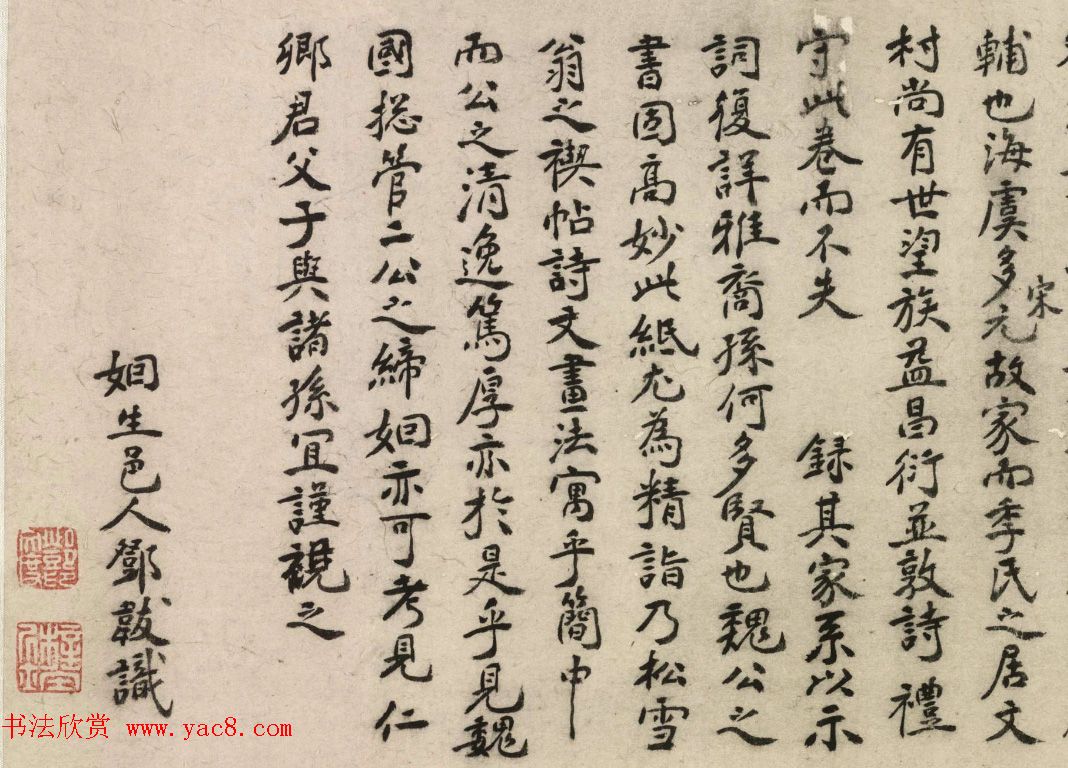 輔也海虞多元故家而季氏之居文
宋
村尚有世望族益昌衍並敦詩禮
守此卷而不失 録其家系以示
詞復詳雅裔孫何多賢也魏公之
書固高妙此紙尤為精詣乃松雪
翁之禊帖詩文畫法寓乎簡中
而公之清逸篤厚亦於是乎見魏
國揔管二公之締姻亦可考見仁
卿君父子與諸孫宜謹襯之
姻生邑人鄧韍識
书法欣赏 www.yac8.com